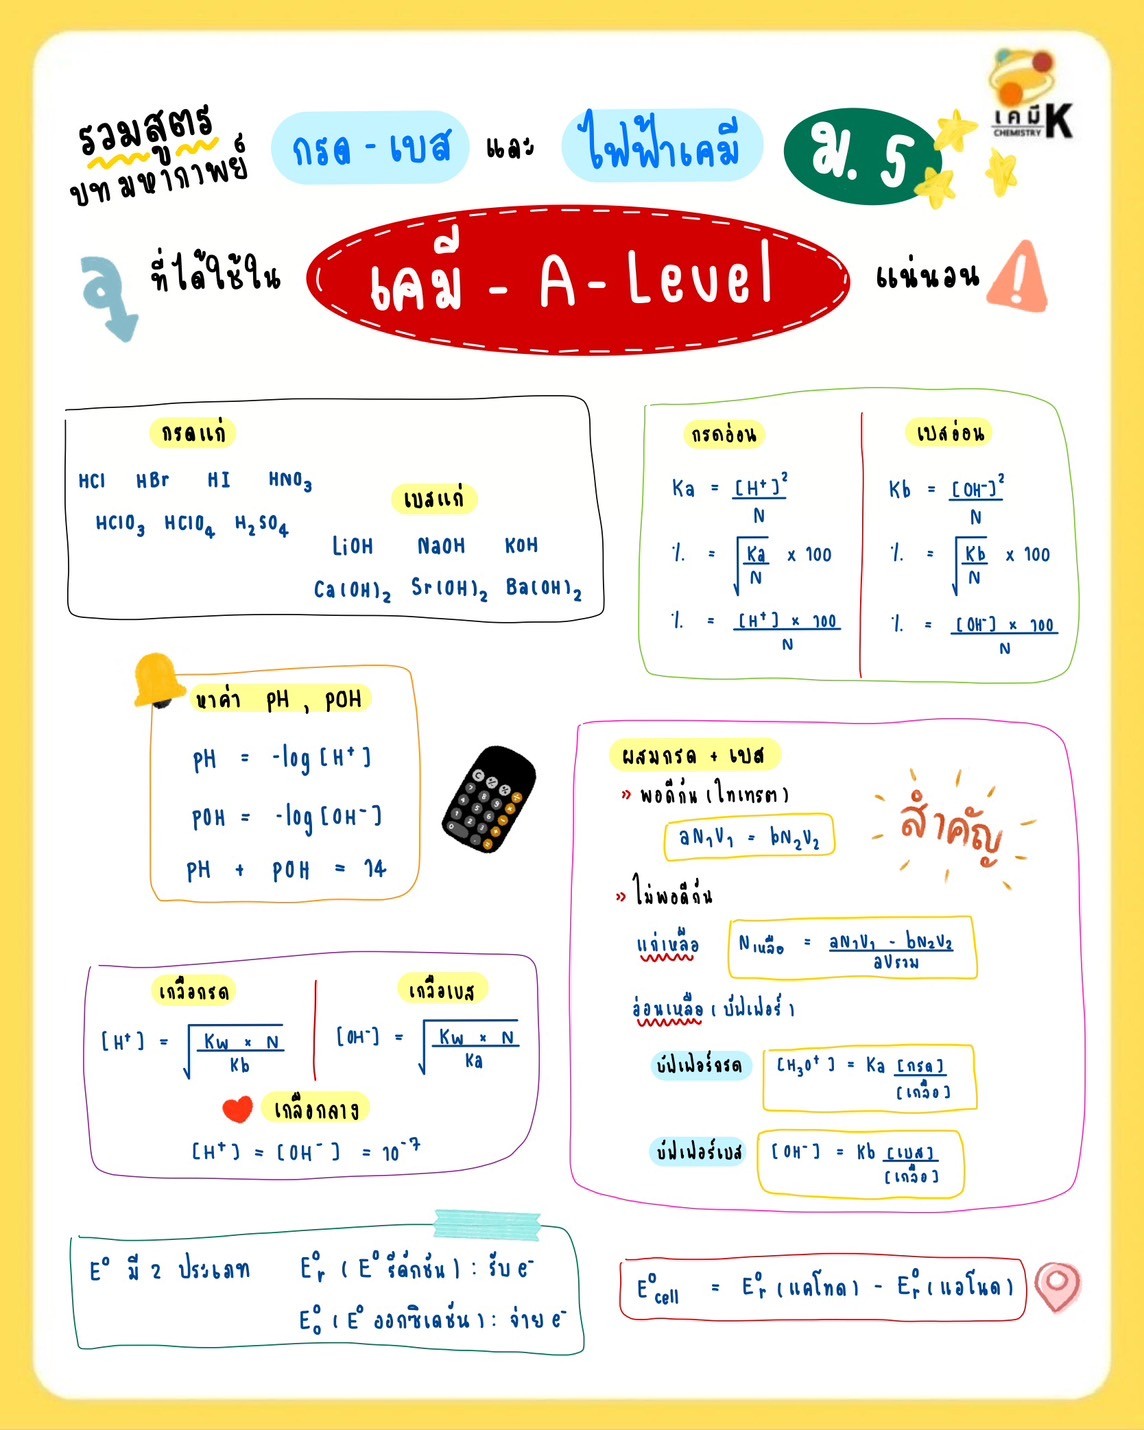 รวมสูตร
บทมหากาพย์
กรด - เบส และ ไฟฟ้าเคมี ม. 5
เคมี K
CHEMISTRY
ที่ได้ใช้ใน เคมี - A - Level แน่นอน
กรดแก่
HCl HBr HI HNO₃
HClO₃ HClO₄ H₂SO₄
เบสแก่
LiOH NaOH KOH
Ca(OH)₂ Sr(OH)₂ Ba(OH)₂
กรดอ่อน
Ka = [H⁺]² / N
% = √(Ka / N) × 100
% = [H⁺] × 100 / N
เบสอ่อน
Kb = [OH⁻]² / N
% = √(Kb / N) × 100
% = [OH⁻] × 100 / N
หาค่า pH , pOH
pH = -log [H⁺]
pOH = -log [OH⁻]
pH + pOH = 14
ผสมกรด + เบส
» พอดีกัน (ไทเทรต)
aN₁V₁ = bN₂V₂
สำคัญ
» ไม่พอดีกัน
แก่เหลือ N เหลือ = aN₁V₁ - bN₂V₂ / aVรวม
อ่อนเหลือ (บัฟเฟอร์)
บัฟเฟอร์กรด [H₃O⁺] = Ka [กรด] / [เกลือ]
บัฟเฟอร์เบส [OH⁻] = Kb [เบส] / [เกลือ]
เกลือกรด
[H⁺] = √(Kw × N / Kb)
เกลือเบส
[OH⁻] = √(Kw × N / Ka)
เกลือกลาง
[H⁺] = [OH⁻] = 10⁻⁷
E° มี 2 ประเภท E°r (E° รีดักชัน) : รับ e⁻
E°o (E° ออกซิเดชัน) : จ่าย e⁻
E°cell = E°r (แคโทด) - E°r (แอโนด)